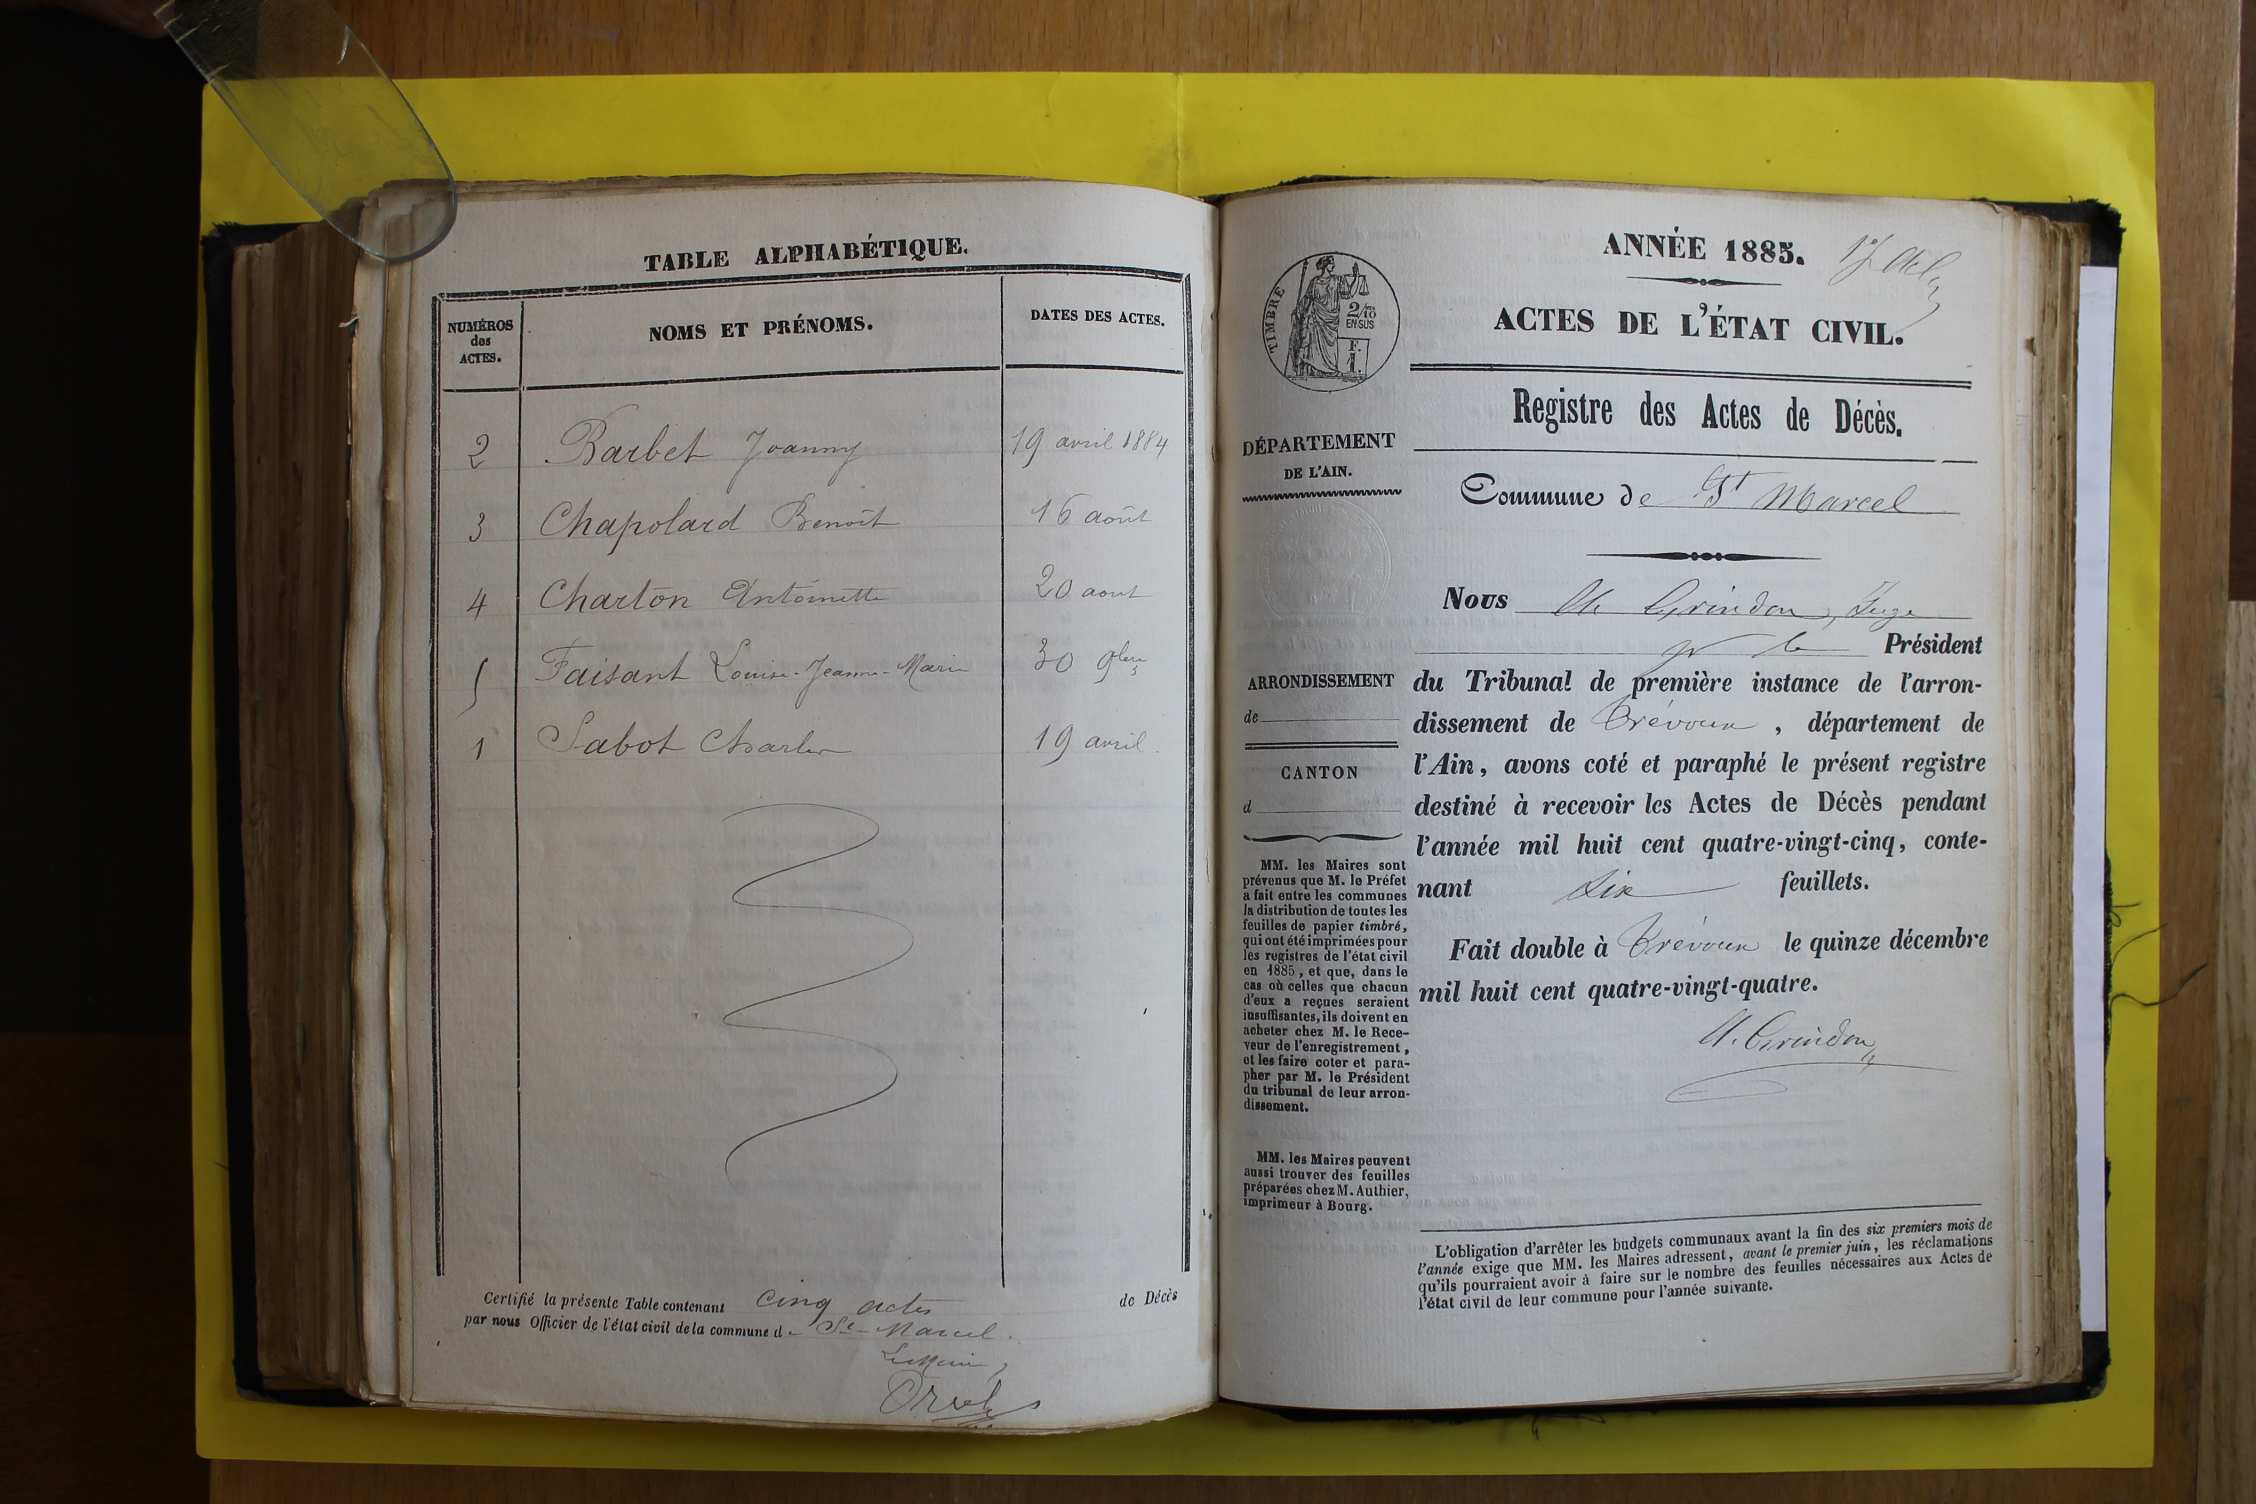 TABLE ALPHABÉTIQUE.
NUMÉROS
des
ACTES.
NOMS ET PRÉNOMS.
DATES DES ACTES.
2 Barbet Joanny 19 avril 1884
3 Chapolard Benoît 16 août
4 Charton Antoinette 20 aout
5 Faisant Louise-Jeanne-Marie 30 9bre
1 Sabot Charles 19 avril.
Certifié la présente Table contenant cinq actes de Décès
par nous Officier de l'état civil de la commune de St-Marcel.
Le Maire,
ANNÉE 1885.
ACTES DE L'ÉTAT CIVIL.
TIMBRE
2/10
EN SUS
F.
1.
Registre des Actes de Décès.
DÉPARTEMENT
DE L'AIN.
Commune de St Marcel
Nous M. Grindon, Juge
pr le Président
du Tribunal de première instance de l'arron-
dissement de Trévoux, département de
l'Ain, avons coté et paraphé le présent registre
destiné à recevoir les Actes de Décès pendant
l'année mil huit cent quatre-vingt-cinq, conte-
nant dix feuillets.
Fait double à Trévoux le quinze décembre
mil huit cent quatre-vingt-quatre.
M. Grindon
ARRONDISSEMENT
de
CANTON
d
MM. les Maires sont
prévenus que M. le Préfet
a fait entre les communes
la distribution de toutes les
feuilles de papier timbré,
qui ont été imprimées pour
les registres de l'état civil
en 1885, et que, dans le
cas où celles que chacun
d'eux a reçues seraient
insuffisantes, ils doivent en
acheter chez M. le Rece-
veur de l'enregistrement,
et les faire coter et para-
pher par M. le Président
du tribunal de leur arron-
dissement.
MM. les Maires peuvent
aussi trouver des feuilles
préparées chez M. Authier,
imprimeur à Bourg.
L'obligation d'arrêter les budgets communaux avant la fin des six premiers mois de
l'année exige que MM. les Maires adressent, avant le premier juin, les réclamations
qu'ils pourraient avoir à faire sur le nombre des feuilles nécessaires aux Actes de
l'état civil de leur commune pour l'année suivante.